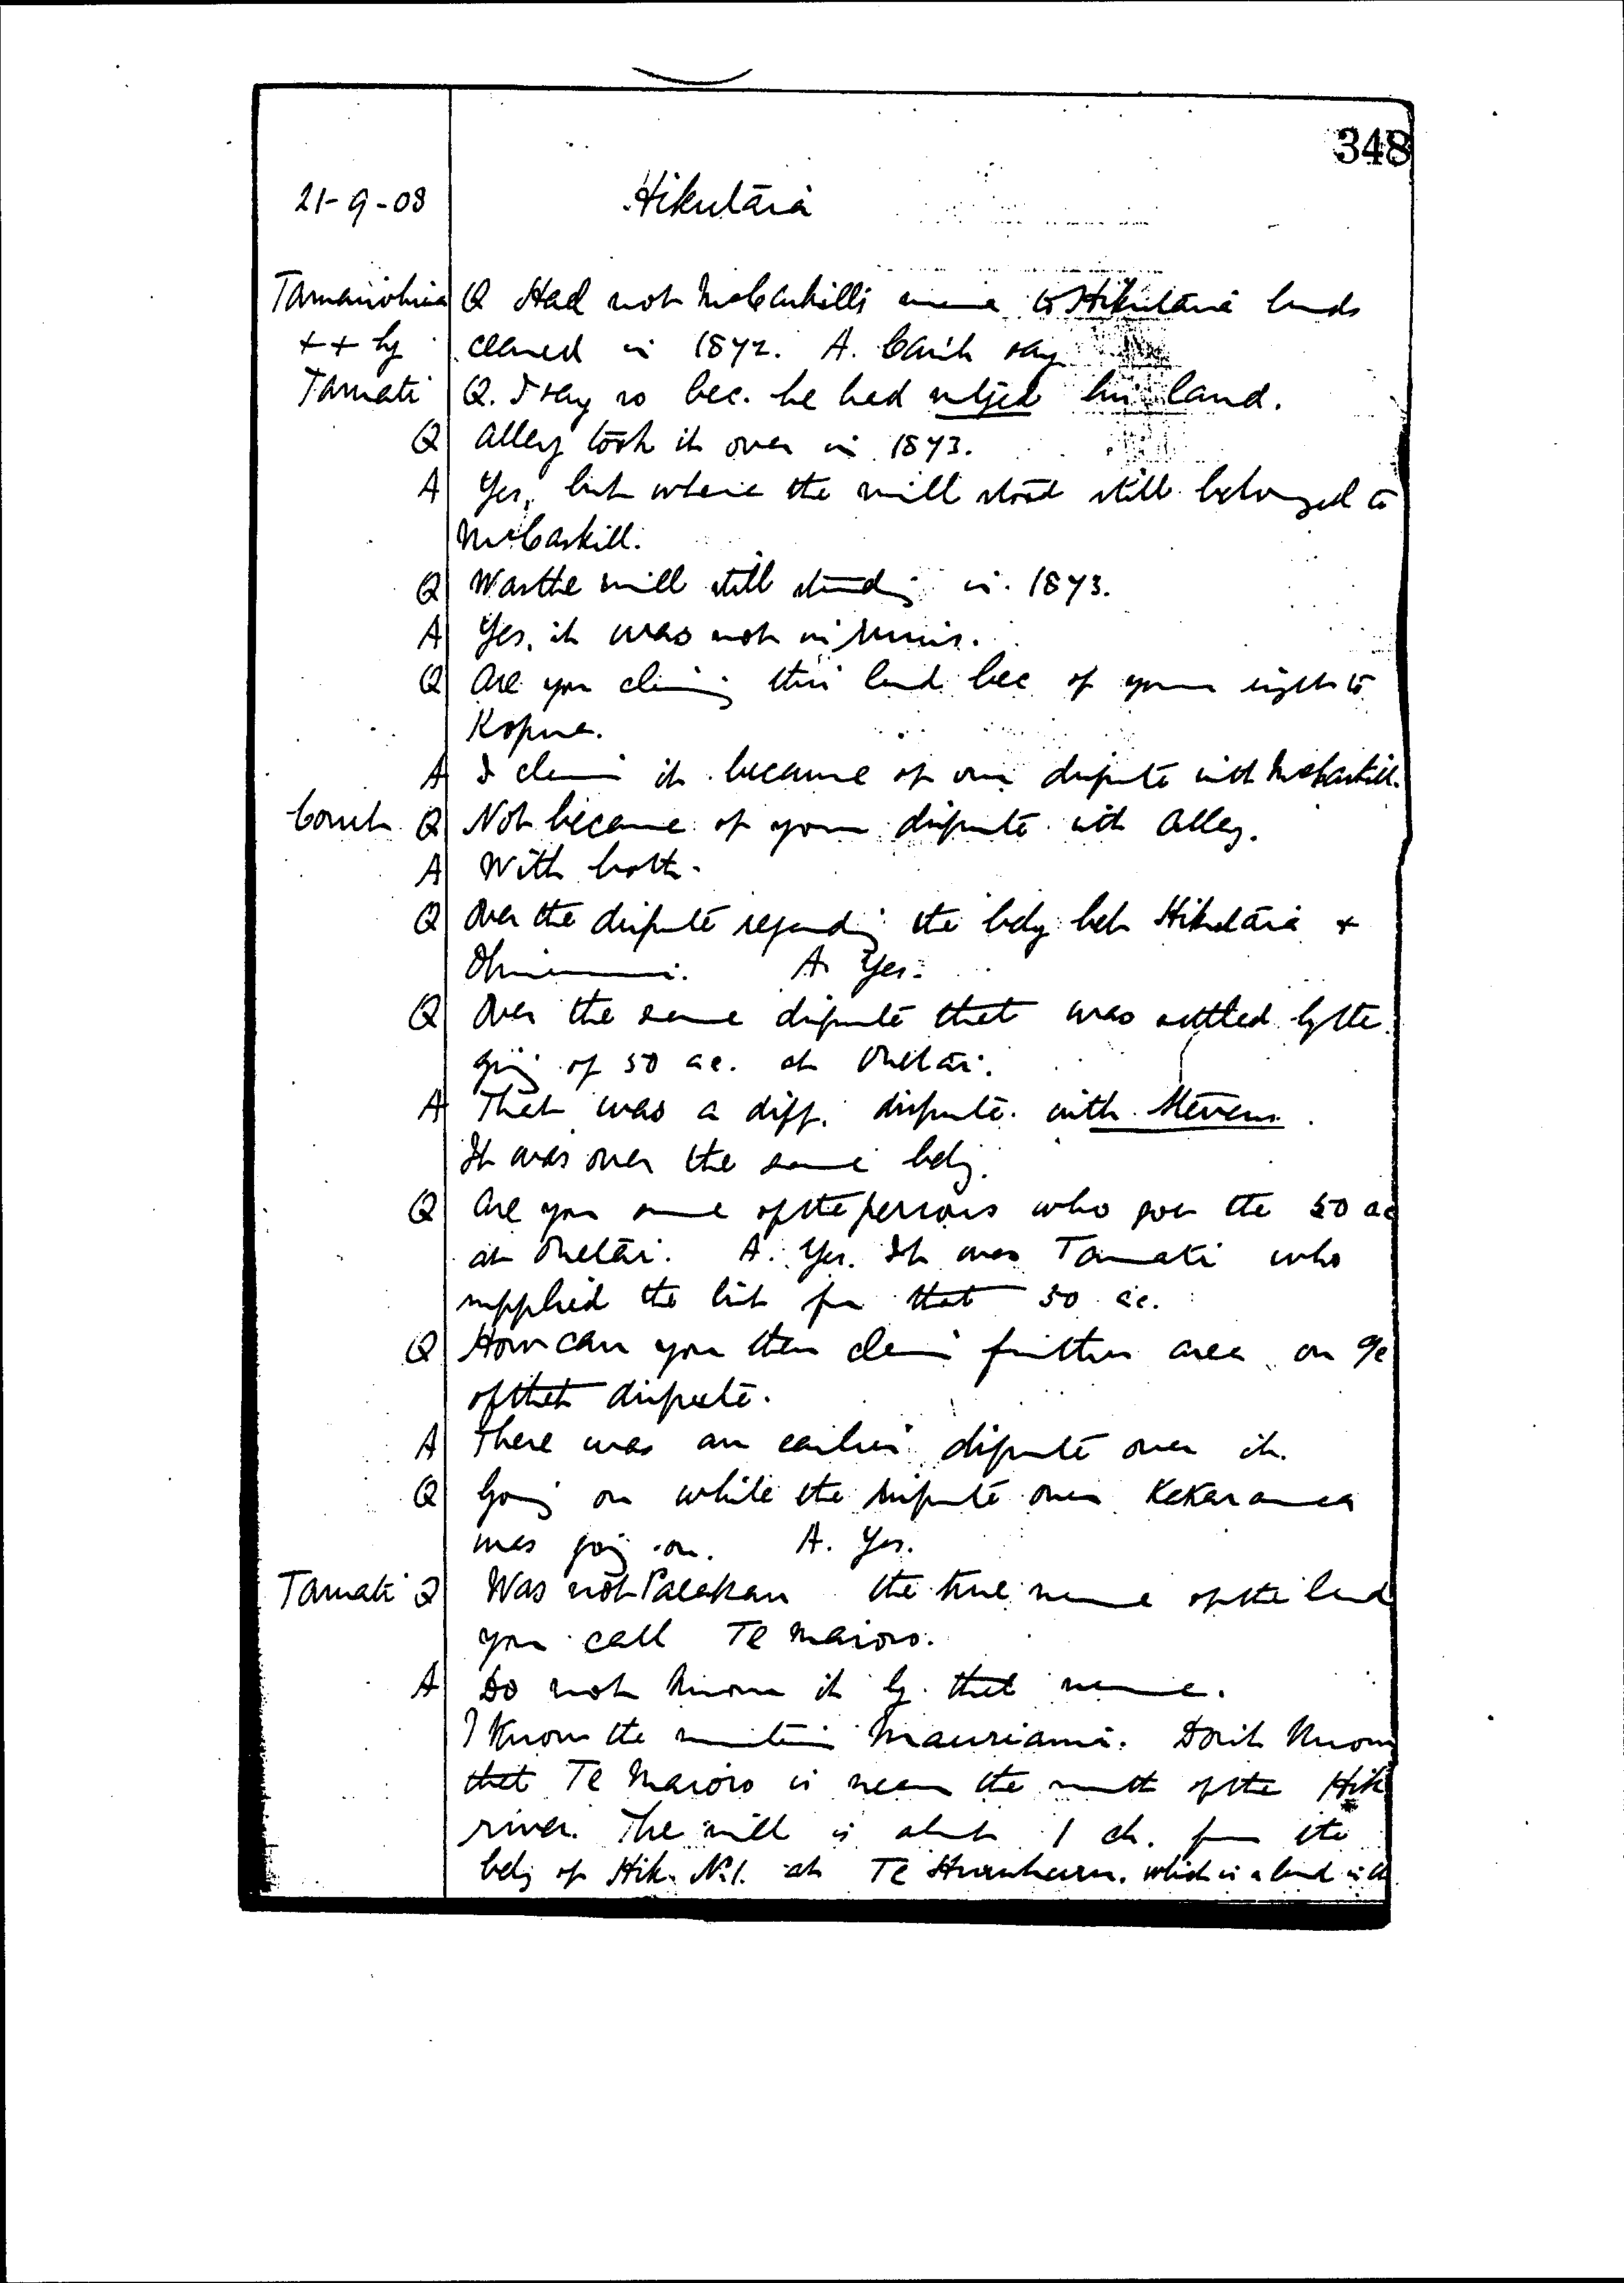 348
21-9-08 Hikutāia
Tamairohia Q Had not McCaskills to Hikutāia lands
++ by ceased in 1872. A. Can't say
Tamati Q. I say so bec. he had mtged his land.
Q Alley took it over in 1873.
A Yes, but where the mill stood still belonged to
McCaskill.
Q Was the mill still standing in 1873.
A Yes, it was not in ruins.
Q Are you claiming this land bec of your right to
Kopua.
A I claim it because of our dispute with McCaskill.
Court Q Not because of your dispute with Alley.
A With both.
Q Over the dispute regarding the bdy bet Hikutāia +
Ohinemuri. A. Yes.
Q Over the same dispute that was settled by the
giving of 50 ac. at Onetāi.
A That was a diff. dispute with Stevens.
It was over the same bdy.
Q Are you one of the persons who got the 50 ac
at Onetāi. A. Yes. It was Tamati who
supplied the list for that 50 ac.
Q How can you then claim further area on a/c
of that dispute.
A There was an earlier dispute over it.
Q Going on while the dispute over Kekaramea
was going on. A. Yes.
Tamati Q Was not the true name of the land
you call Te Maioro.
A Do not know it by that name.
I know the mountain Mauriami. Don't know
that Te Maioro is near the mouth of the Hik
river. The mill is about 1 ch. from the
bdy of Hik. No.1. at Te which is a bend in the